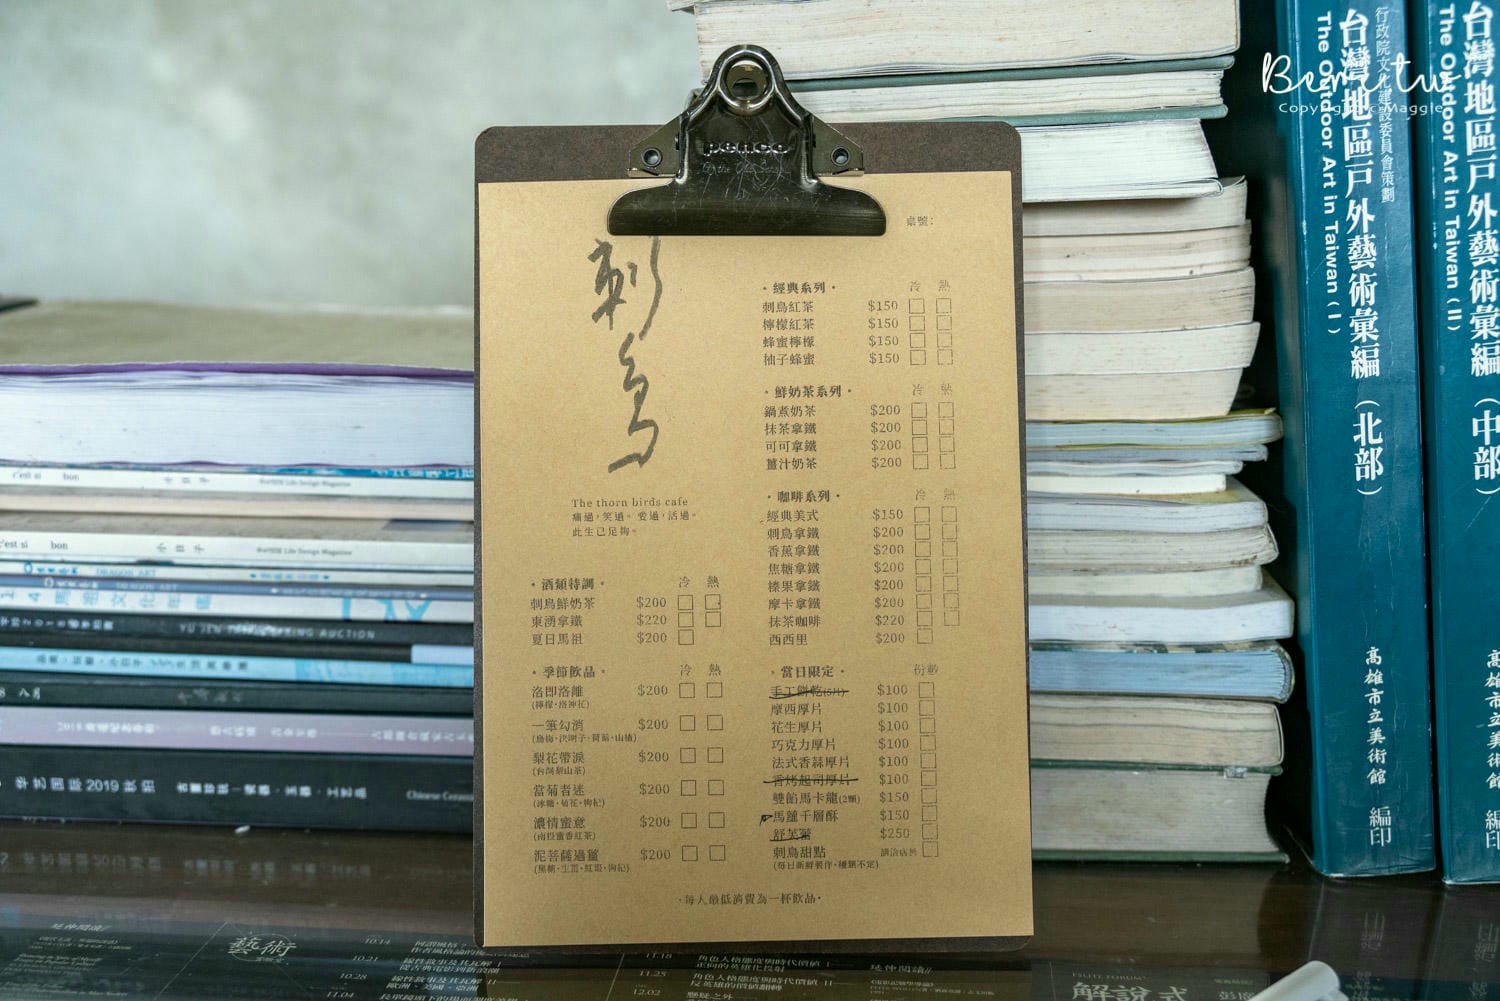 penco
桌號:
刺鳥
The thorn birds cafe
痛過,笑過。愛過,活過。
此生已足夠。
・經典系列・ 冷 熱
刺鳥紅茶 $150
檸檬紅茶 $150
蜂蜜檸檬 $150
柚子蜂蜜 $150
・鮮奶茶系列・ 冷 熱
鍋煮奶茶 $200
抹茶拿鐵 $200
可可拿鐵 $200
薑汁奶茶 $200
・咖啡系列・ 冷 熱
經典美式 $150
刺鳥拿鐵 $200
香蕉拿鐵 $200
焦糖拿鐵 $200
榛果拿鐵 $200
摩卡拿鐵 $200
抹茶咖啡 $220
西西里 $200
・酒類特調・ 冷 熱
刺鳥鮮奶茶 $200
東湧拿鐵 $220
夏日馬祖 $200
・季節飲品・ 冷 熱
洛即洛離 $200
(檸檬·洛神花)
一筆勾消 $200
(烏梅·決明子·荷葉·山楂)
梨花帶淚 $200
(台灣梨山茶)
當菊者迷 $200
(冰糖·菊花·枸杞)
濃情蜜意 $200
(南投蜜香紅茶)
泥菩薩過薑 $200
(黑糖·生薑·紅棗·枸杞)
・當日限定・ 份數
手工餅乾(5片) $100
摩西厚片 $100
花生厚片 $100
巧克力厚片 $100
法式香蒜厚片 $100
香烤起司厚片 $100
雙餡馬卡龍(2顆) $150
馬蘿千層酥 $150
舒芙蕾 $250
刺鳥甜點 請洽店長
(每日新鮮製作·種類不定)
・每人最低消費為一杯飲品・
行政院文化建設委員會策劃
台灣地區戶外藝術彙編(北部)
The Outdoor Art in Taiwan (I)
高雄市立美術館 編印
台灣地區戶外藝術彙編(中部)
The Outdoor Art in Taiwan (II)
c'est si bon
小日子
Life Design Magazine
c'est si bon
小日子
Life Design Magazine
2019秋拍
Chinese Ceramic
藝術
10.14
10.21
10.28
11.04
11.18
11.25
12.02
延伸閱讀//
解說式